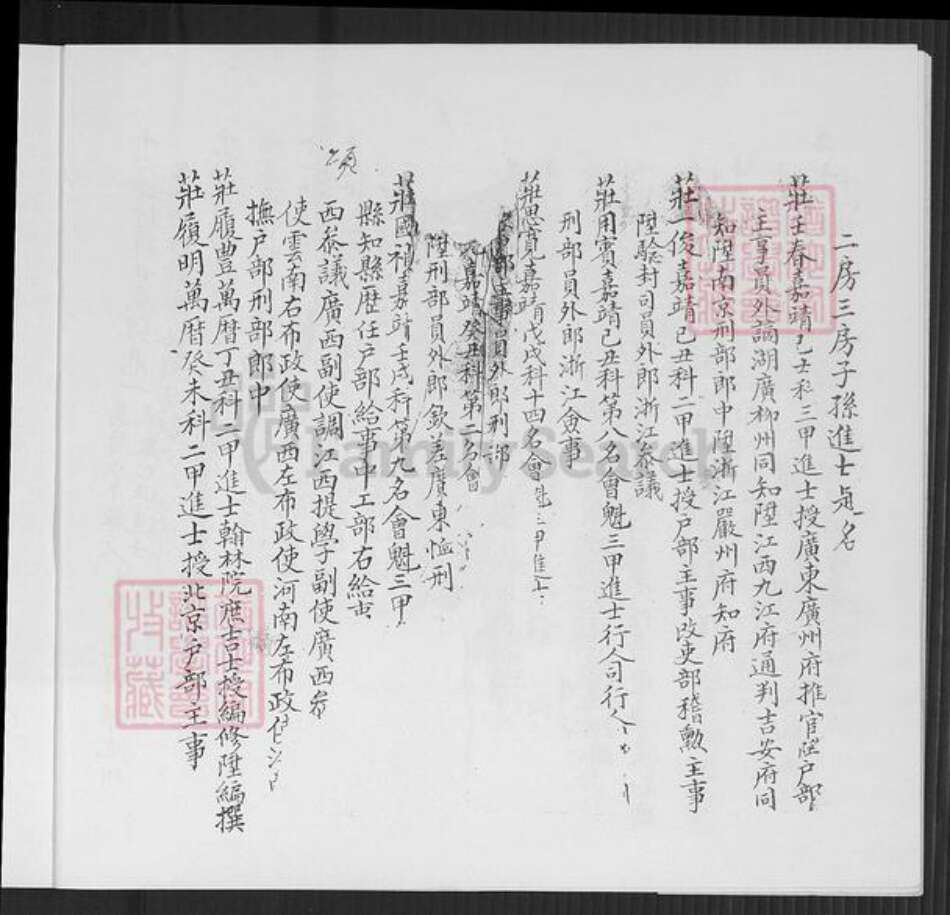 二房三房子孫進士貞名
莊壬春嘉靖己丑科三甲進士授廣東廣州府推官陞戶部
主事員外謫湖廣柳州同知陞江西九江府通判吉安府同
知陞南京刑部郎中陞浙江嚴州府知府
莊一俊嘉靖己丑科二甲進士授戶部主事改吏部稽勳主事
陞驗封司員外郎浙江參議
莊用賓嘉靖己丑科第八名會魁三甲進士行人司行人
刑部員外郎浙江僉事
莊思寬嘉靖戊戌科十四名會魁三甲進士
部主事員外郎刑部
嘉靖癸丑科第二名會
陞刑部員外郎欽差廣東恤刑
莊國禎嘉靖壬戌科第九名會魁三甲
縣知縣歷任戶部給事中工部右給事
西叅議廣西副使調江西提學副使廣西叅
使雲南右布政使廣西左布政使河南左布政使
撫戶部刑部郎中
莊履豊萬曆丁丑科二甲進士翰林院庶吉士授編修陞編撰
莊履明萬曆癸未科二甲進士授北京戶部主事
FamilySearch